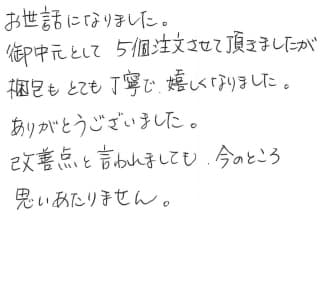 お世話になりました。
御中元として 5個注文させて頂きましたが
梱包もとても丁寧で、嬉しくなりました。
ありがとうございました。
改善点と言われましても、今のところ
思いあたりません。